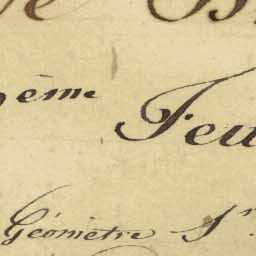 ème Feu
Géomètre Sr